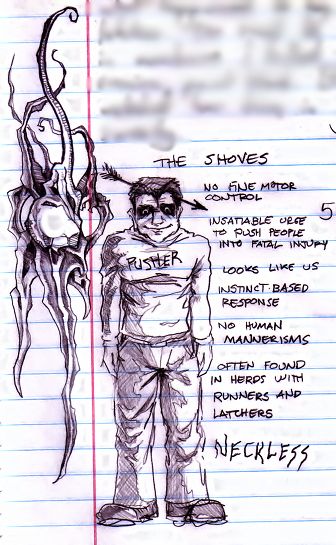 THE SHOVES
NO FINE MOTOR
CONTROL
5
INSATIABLE URGE
TO PUSH PEOPLE
INTO FATAL INJURY
PUSHER
LOOKS LIKE US
INSTINCT-BASED
RESPONSE
NO HUMAN
MANNERISMS
OFTEN FOUND
IN HERDS WITH
RUNNERS AND
LATCHERS
NECKLESS